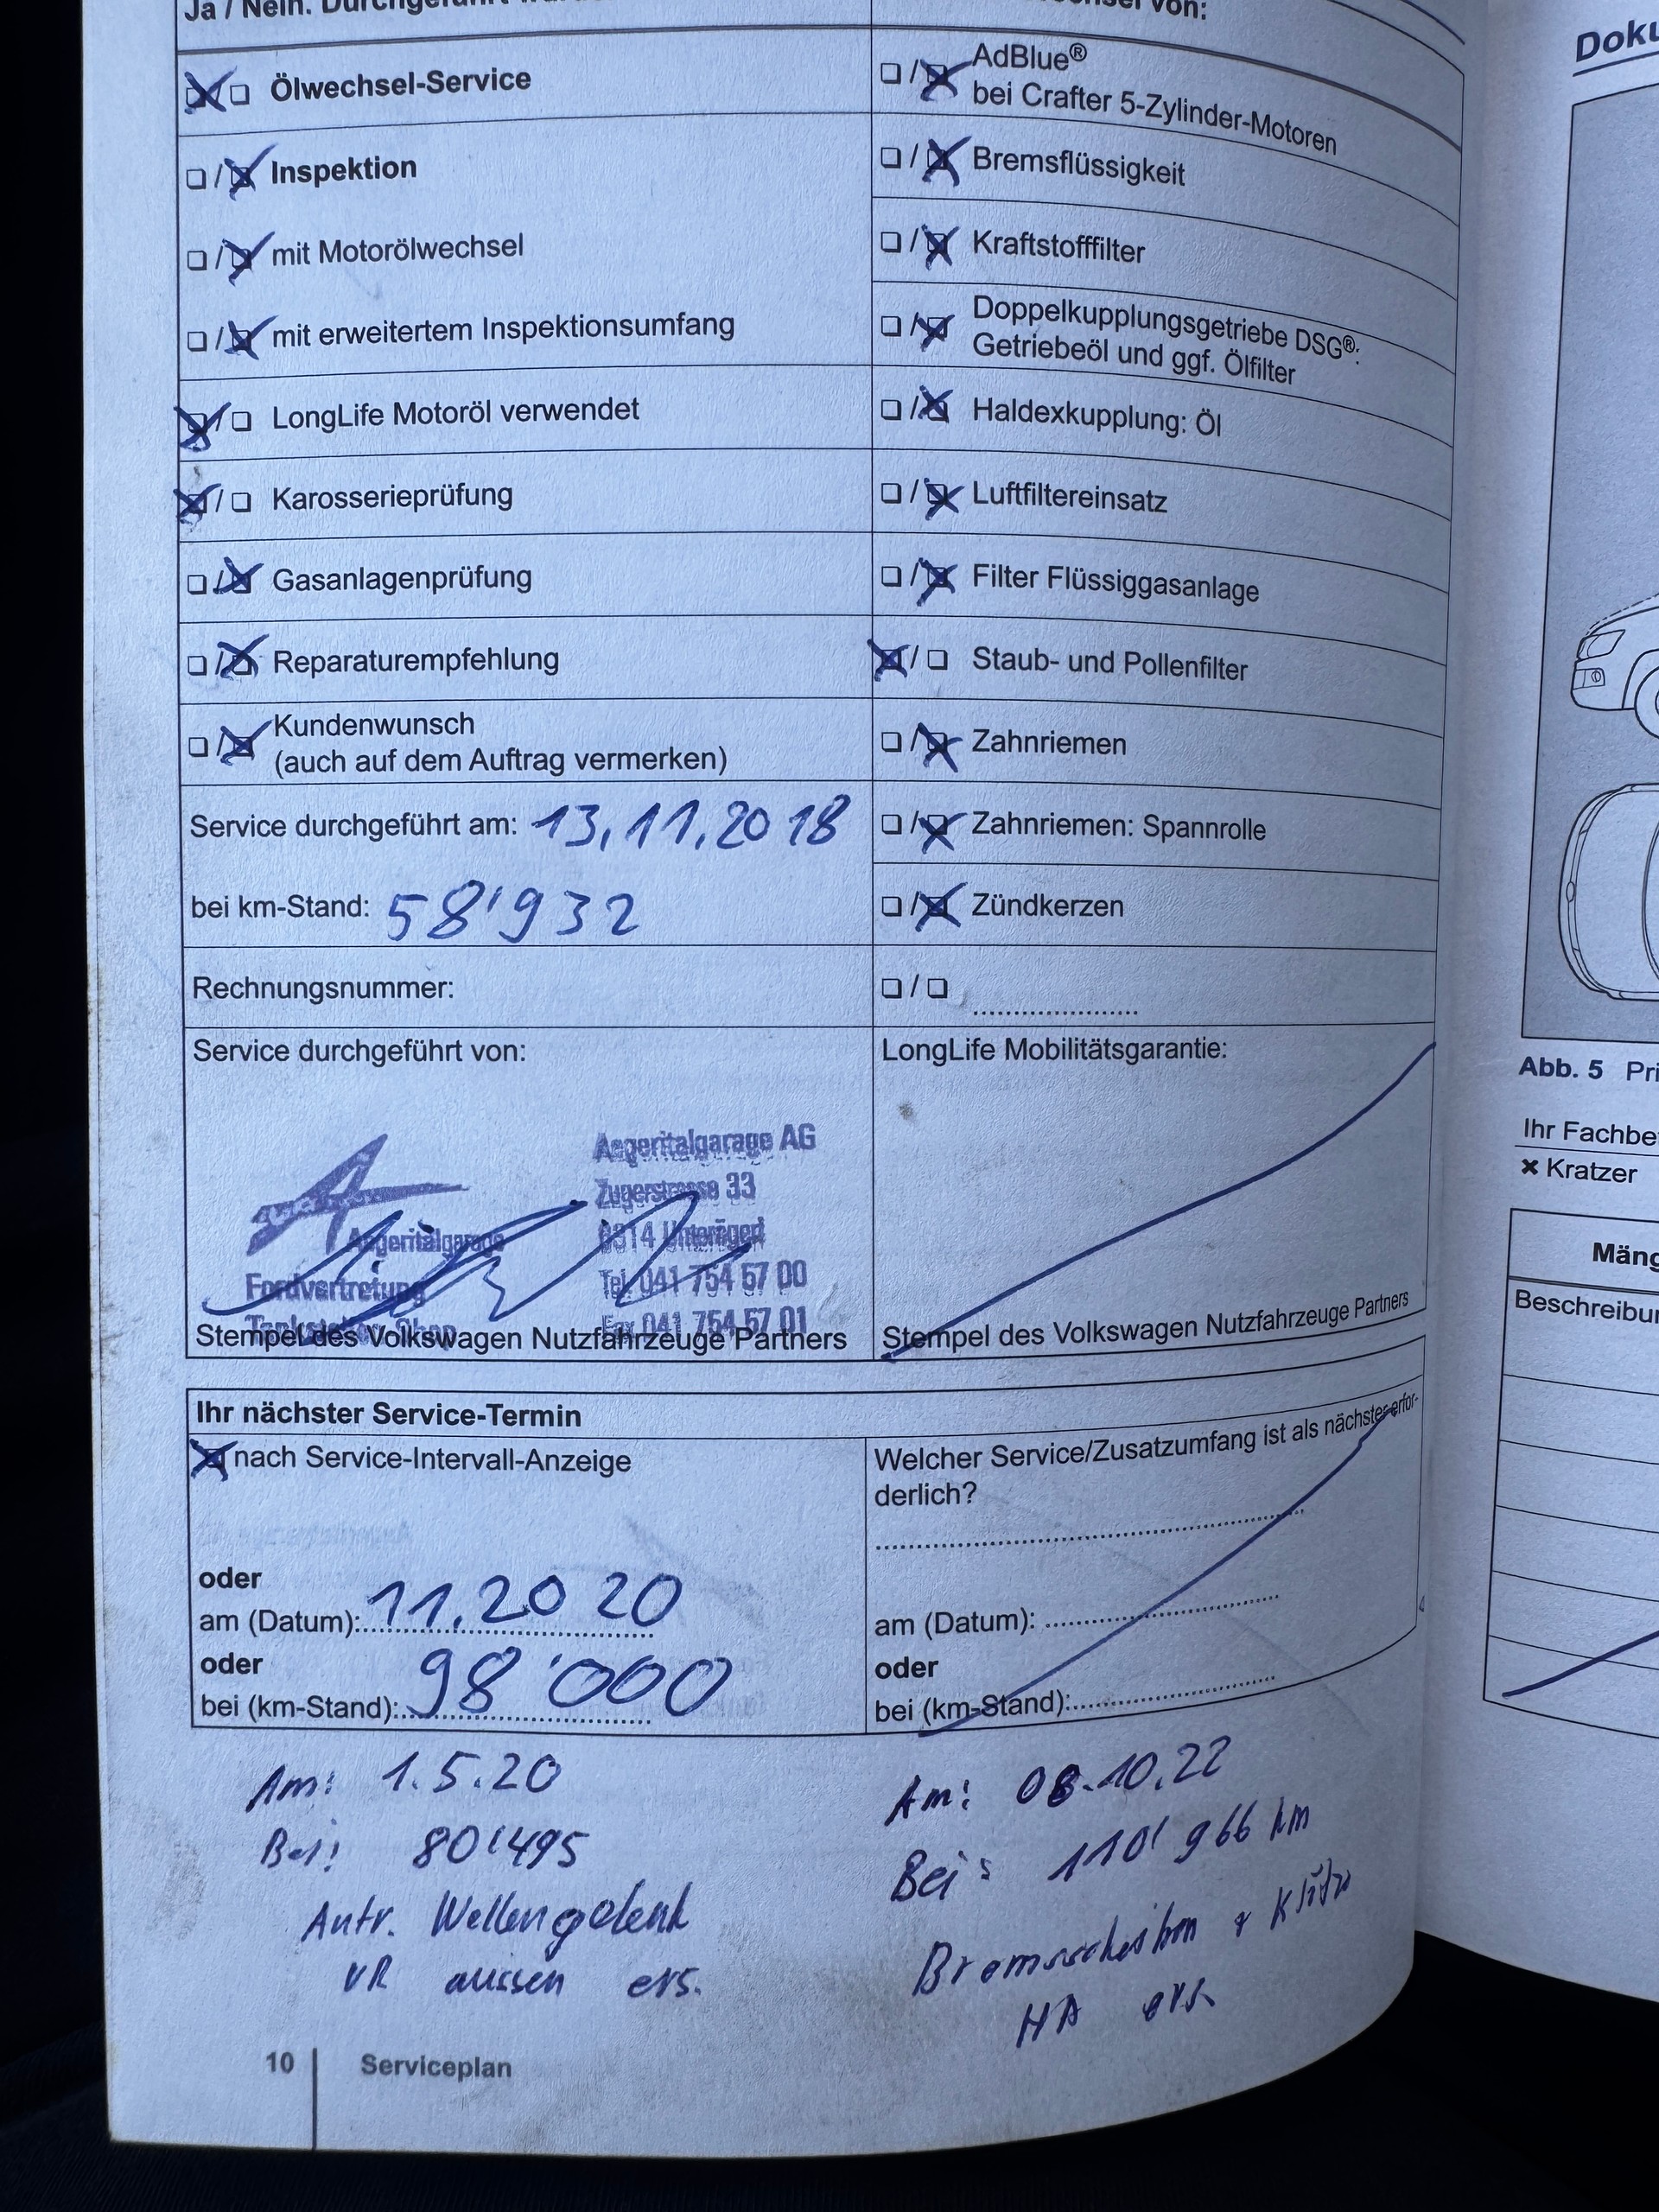 Ja / Nein. Durchgeführt
von:
☒ / ☐ Ölwechsel-Service
☐ / ☒ Inspektion
☐ / ☒ mit Motorölwechsel
☐ / ☒ mit erweitertem Inspektionsumfang
☒ / ☐ LongLife Motoröl verwendet
☒ / ☐ Karosserieprüfung
☐ / ☒ Gasanlagenprüfung
☐ / ☒ Reparaturempfehlung
☐ / ☒ Kundenwunsch
(auch auf dem Auftrag vermerken)
Service durchgeführt am: 13.11.2018
bei km-Stand: 58'932
Rechnungsnummer:
Service durchgeführt von:
Aegeritalgarage
Fordvertretung
Aegeritalgarage AG
Zugerstrasse 33
6314 Unterägeri
Tel. 041 754 57 00
Fax 041 754 57 01
Stempel des Volkswagen Nutzfahrzeuge Partners
☐ / ☒ AdBlue®
bei Crafter 5-Zylinder-Motoren
☐ / ☒ Bremsflüssigkeit
☐ / ☒ Kraftstofffilter
☐ / ☒ Doppelkupplungsgetriebe DSG®:
Getriebeöl und ggf. Ölfilter
☐ / ☒ Haldexkupplung: Öl
☐ / ☒ Luftfiltereinsatz
☐ / ☒ Filter Flüssiggasanlage
☒ / ☐ Staub- und Pollenfilter
☐ / ☒ Zahnriemen
☐ / ☒ Zahnriemen: Spannrolle
☐ / ☒ Zündkerzen
☐ / ☐ ....................
LongLife Mobilitätsgarantie:
Stempel des Volkswagen Nutzfahrzeuge Partners
Ihr nächster Service-Termin
☒ nach Service-Intervall-Anzeige
oder
am (Datum): 11.2020
oder
bei (km-Stand): 98'000
Welcher Service/Zusatzumfang ist als nächster erfor-
derlich?
am (Datum):
oder
bei (km-Stand):
Am: 1.5.20
Bei: 80'495
Antr. Wellengelenk
VR aussen ers.
Am: 08.10.22
Bei: 110'966 km
Bremsscheiben + Klötze
HA ers.
10 Serviceplan
Doku
Abb. 5 Pri
Ihr Fachbe
× Kratzer
Mäng
Beschreibu